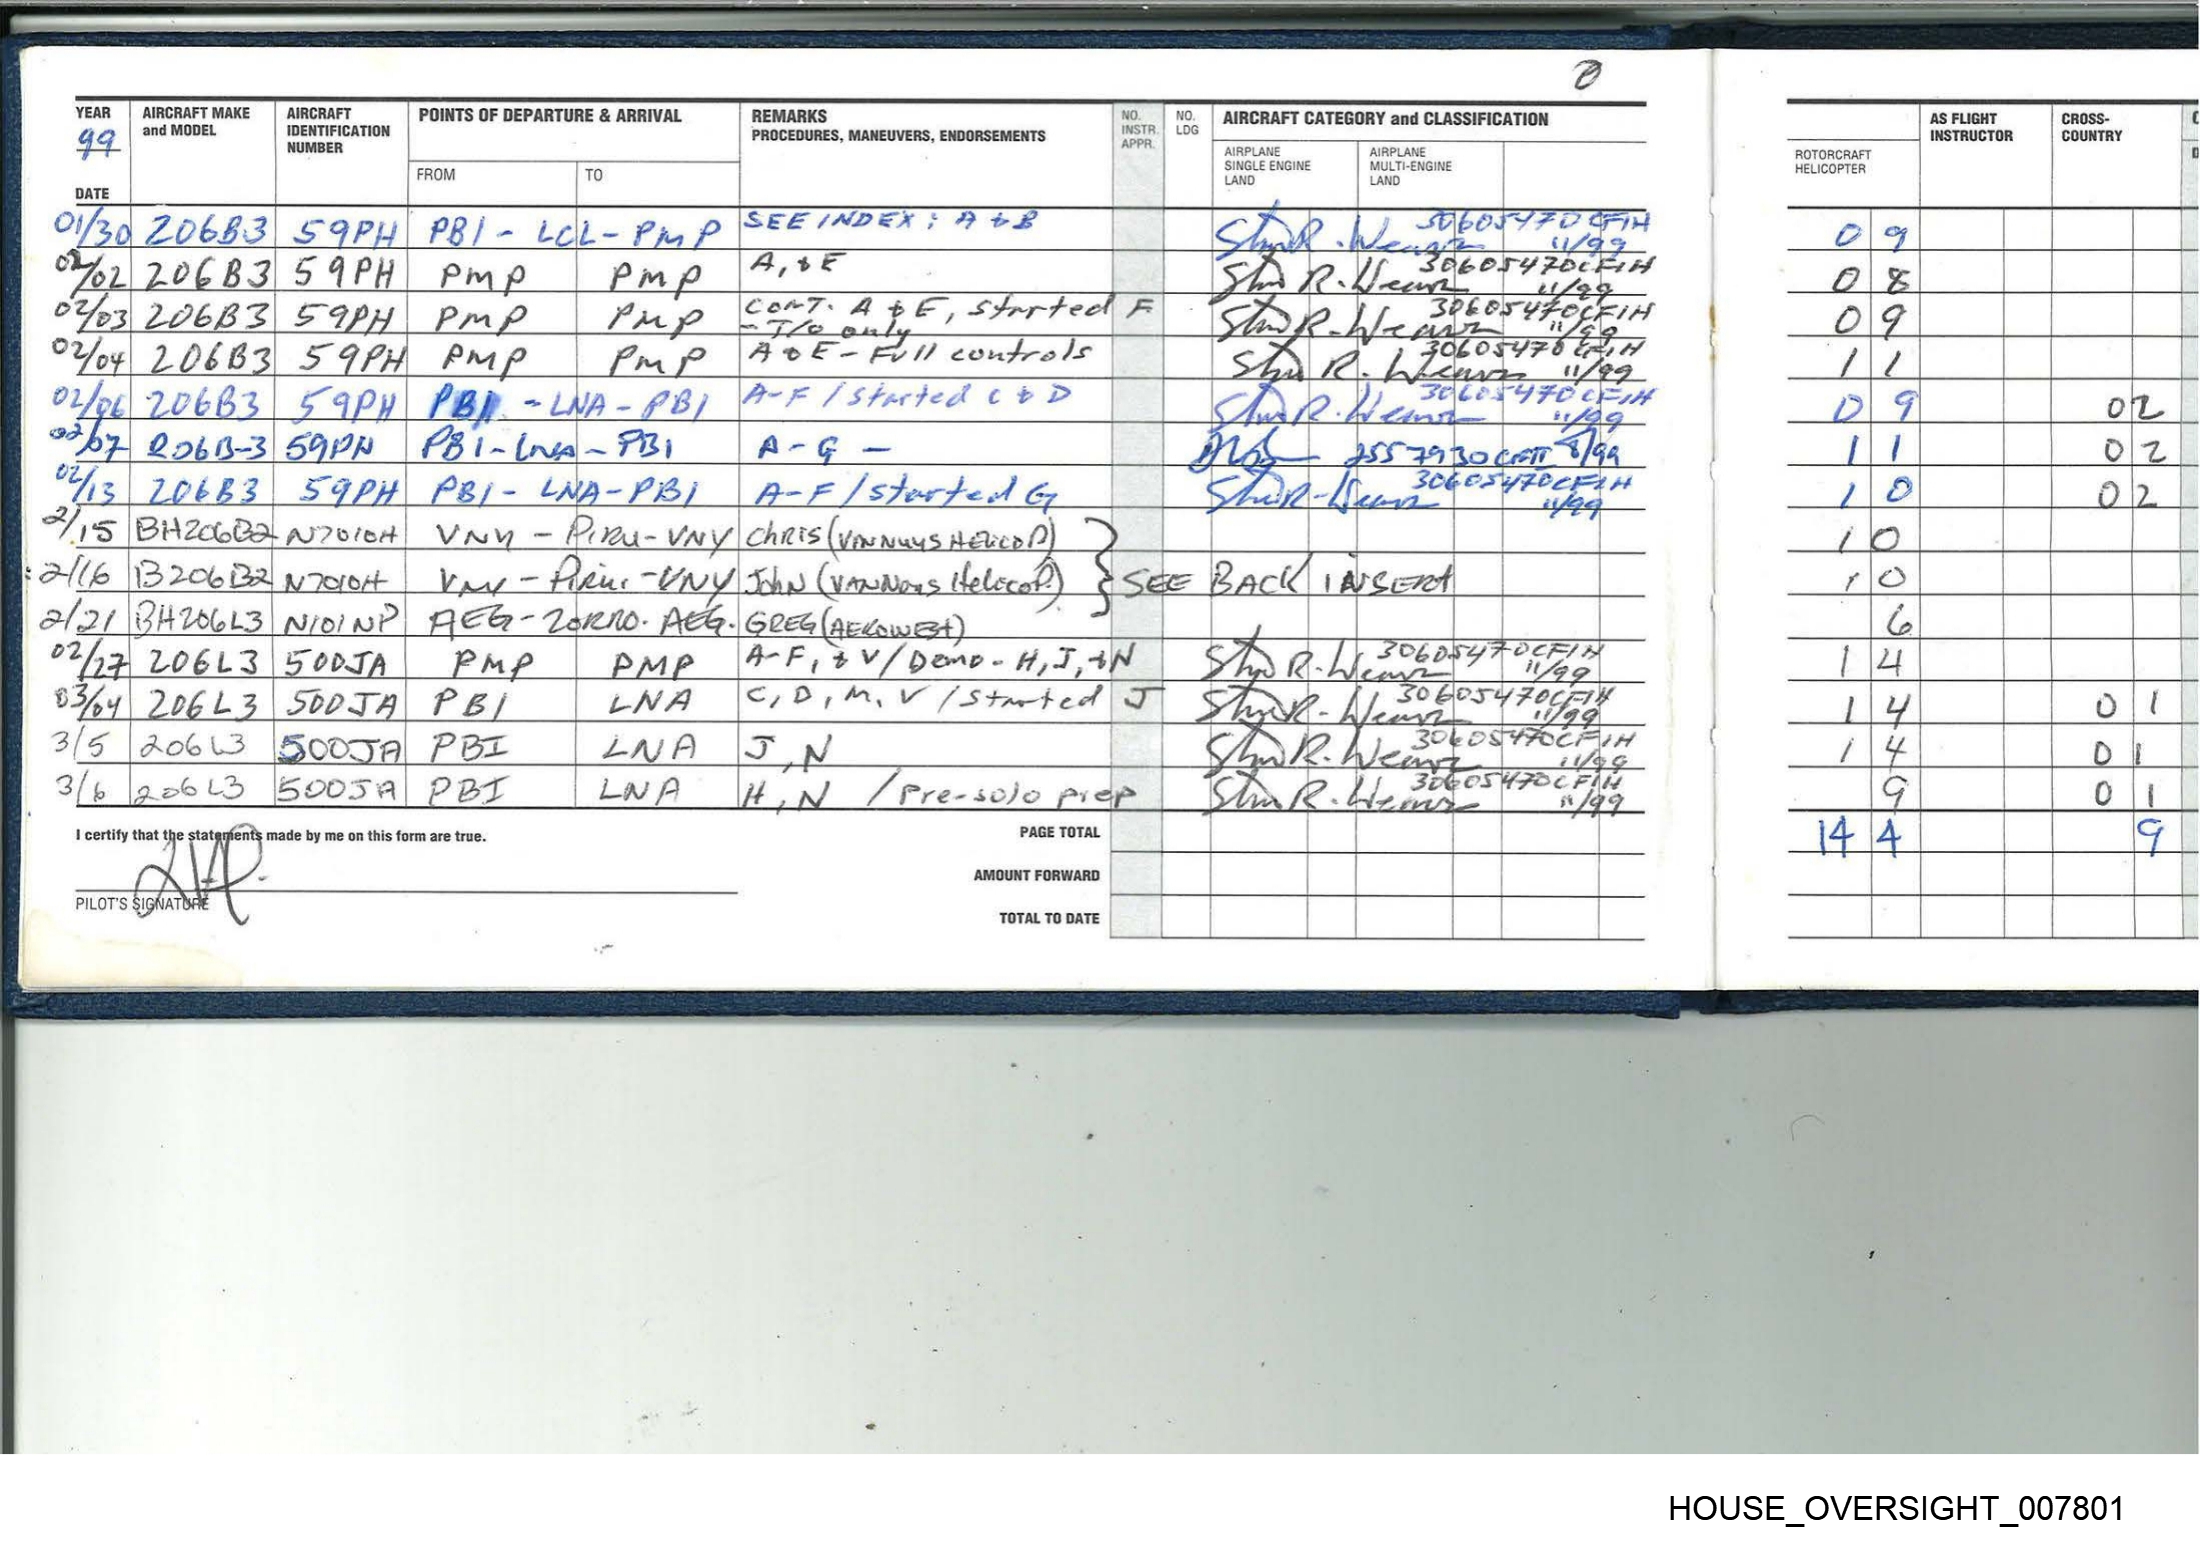 YEAR 99 DATE
AIRCRAFT MAKE and MODEL
AIRCRAFT IDENTIFICATION NUMBER
POINTS OF DEPARTURE & ARRIVAL
FROM TO
REMARKS
PROCEDURES, MANEUVERS, ENDORSEMENTS
NO. INSTR. APPR.
NO. LDG
AIRCRAFT CATEGORY and CLASSIFICATION
AIRPLANE SINGLE ENGINE LAND
AIRPLANE MULTI-ENGINE LAND
ROTORCRAFT HELICOPTER
AS FLIGHT INSTRUCTOR
CROSS-COUNTRY
01/30 206B3 59PH PBI - LCL - PMP SEE INDEX: A & B 30605470CFIH 11/99 0 9
02/02 206B3 59PH PMP PMP A, & E 30605470CFIH 11/99 0 8
02/03 206B3 59PH PMP PMP CONT. A & E, started F - T/O only 30605470CFIH 11/99 0 9
02/04 206B3 59PH PMP PMP A & E - Full controls 30605470CFIH 11/99 1 1
02/06 206B3 59PH PBI - LNA - PBI A-F / started C & D 30605470CFIH 11/99 0 9 0 2
02/07 206B-3 59PH PBI - LNA - PBI A - G - 8/99 1 1 0 2
02/13 206B3 59PH PBI - LNA - PBI A-F / started G 30605470CFIH 11/99 1 0 0 2
2/15 BH206B2 N7010H VNY - PIRU - VNY CHRIS (VANNUYS HELICOP) 1 0
2/16 B206B2 N7010H VNY - PIRU - VNY JOHN (VANNUYS HELICOP.) SEE BACK INSERT 1 0
2/21 BH206L3 N101NP AEG - ZORRO. AEG. GREG (AEROWEST) 6
02/27 206L3 500JA PMP PMP A-F, & V / Demo - H, J, & N 30605470CFIH 11/99 1 4
03/04 206L3 500JA PBI LNA C, D, M, V / started J 30605470CFIH 11/99 1 4 0 1
3/5 206L3 500JA PBI LNA J, N 30605470CFIH 11/99 1 4 0 1
3/6 206L3 500JA PBI LNA H, N / Pre-solo prep 30605470CFIH 11/99 9 0 1
I certify that the statements made by me on this form are true.
PAGE TOTAL 14 4 9
AMOUNT FORWARD
PILOT'S SIGNATURE
TOTAL TO DATE
HOUSE_OVERSIGHT_007801